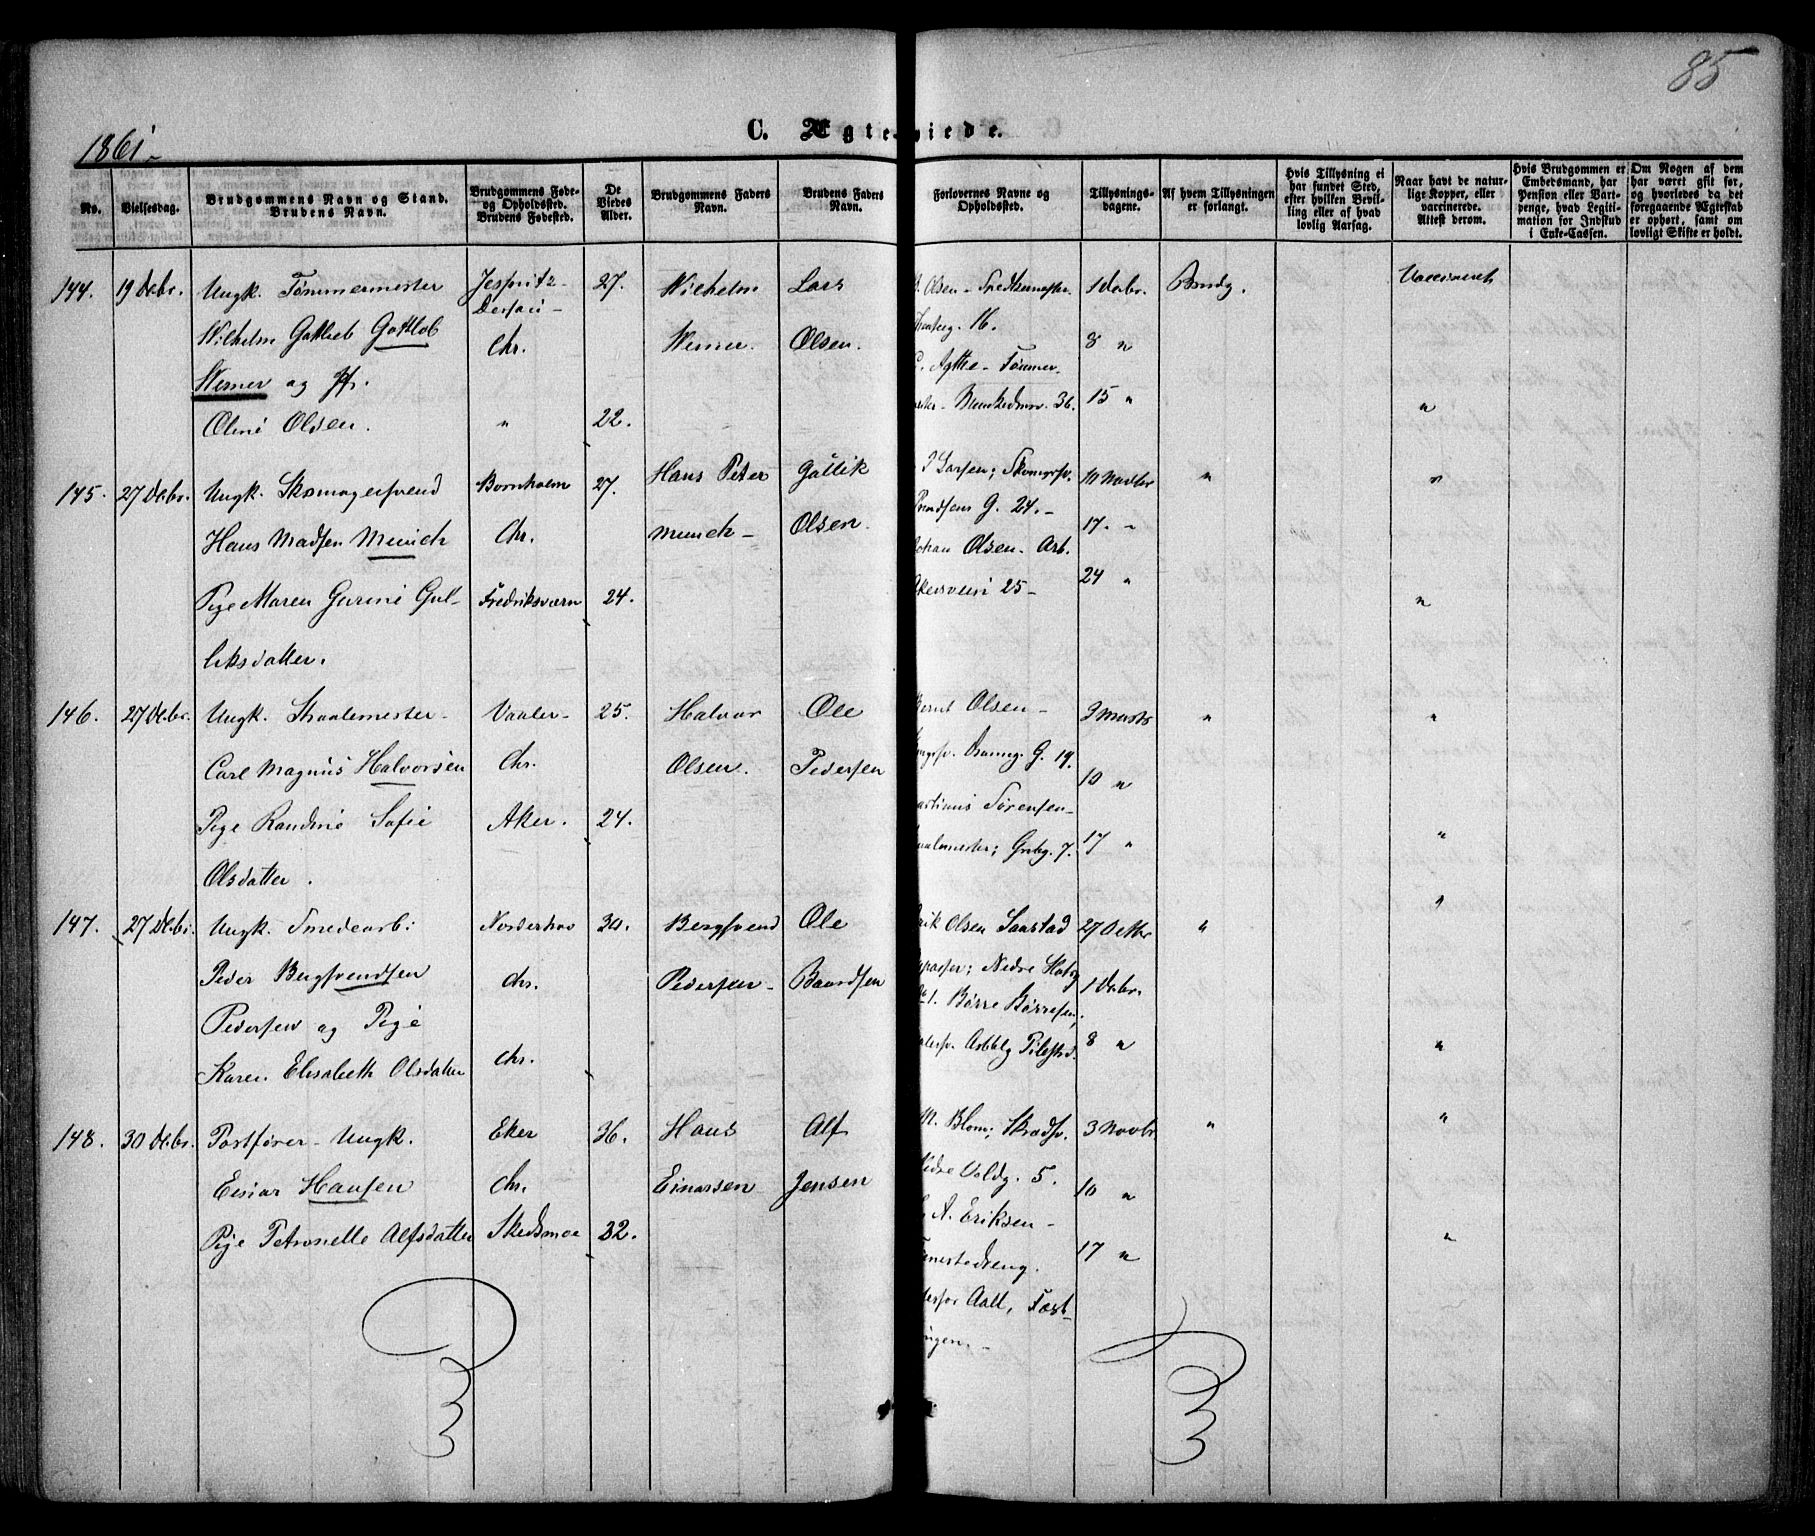 85
1861.
C. Ægteviede.
No.
Vielsesdag.
Brudgommens Navn og Stand. Brudens Navn.
Brudgommens Føde- og Opholdssted. Brudens Fødested.
De Viedes Alder.
Brudgommens Faders Navn.
Brudens Faders Navn.
Forlovernes Navne og Opholdssted.
Tillysnings-dagene.
Af hvem Tillysningen er forlangt.
Hvis Tillysning ei har fundet Sted, efter hvilken Bevilling eller af hvad lovlig Aarsag.
Naar havt de naturlige Kopper, eller varcinerede. Attest derom.
Hvis Brudgommen er Embedsmand, har Pension eller Vartpenge, hvad Legitimation for Indskud i Enke-Cassen.
Om Nogen af dem har været gift før, og hvorledes da det foregaaende Ægteskab er ophørt, samt om lovligt Skifte er holdt.
144. 19 Debr. Ungk. Tømmermester 27. Wilhelm Lars Olsen 1 Debr. Brudg. Vaccineret
Wilhelm Gottlieb Gottlob Chr. Werner. Olsen. 16. 8 "
Werner og Pr. Tømmer
Oliné Olsen. " 22. 36. 15 " "
145. 27 Debr. Ungk. Skomagersvend Bornholm 27. Hans Peter Gullik Larsen; Skomgsv. 10 Novbr " "
Hans Madsen Munch Chr. Munch - Olsen. G. 24. - 17. "
Johan Olsen. Arb.
Pige Maren Gurine Gul- Fredriksværn 24. Akersveien 25 - 24 " "
liksdatter.
146. 27 Debr. Ungk. Straalemester - Vaaler - 25. Halvor Ole Bernt Olsen - 3 Marts " "
Carl Magnus Halvorsen Chr. Olsen. Pedersen G. 19. 10 "
Pige Randine Sofie Aker. 24. Sørensen - "
Olsdatter. 7. 17 "
147. 27 Debr. Ungk. Smedearb: Norderhov 30. Bergsvend Ole Olsen Saastad 27 Octbr " "
Peder Bergsvendsen Chr. Pedersen - Baardsen Nedre 1 Debr.
Pedersen og Pige 1. Børre Børresen,
Karen Elisabeth Olsdatter Chr. 8 " "
148. 30 Debr. Postfører - Ungk. Eker 36. Hans Alf M. Blom; Skrædsv. 3 Novbr " "
Einar Hansen Chr. Einarsen Jensen 5. 10 "
Pige Petronelle Alfsdatter Skedsmoe 32. A. Eriksen - 17 " "
Aall, Fæst-
ningen. -